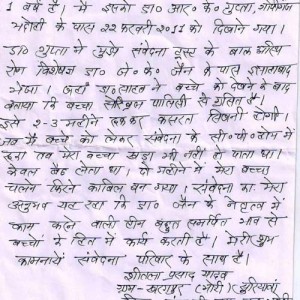 1 वर्ष है। मैं इसको डा० आर० के० गुप्ता, गोपीगंज
भदोही के पास 22 फरवरी 2011 को दिखाने गया।
डा० गुप्ता ने मुझे संवेदना ट्रस्ट के बाल अस्थि
रोग विशेषज्ञ डा० जे० के० जैन के पास इलाहाबाद
भेजा। जहाँ डा० साहब ने बच्चे को देखने के बाद
बताया कि बच्चा सेरेब्रल पाल्सी से ग्रसित है।
इसे 2-3 महीने रुककर कसरत सिखनी होगी।
जब मैं बच्चे को लेकर संवेदना के सी० पी० होम में
रुका तब मेरा बच्चा खड़ा भी नहीं हो पाता था।
केवल बैठ लेता था। दो महीने में मेरा बच्चा
चलने फिरने काबिल बन गया। संवेदना का मेरा
अनुभव यह रहा कि डा० जैन के नेतृत्व में
काम करने वाली टीम बहुत समर्पित भाव से
बच्चों के हित में कार्य करती है। मेरी शुभ
कामनायें संवेदना परिवार के साथ है।
शीतला प्रसाद यादव
ग्राम-